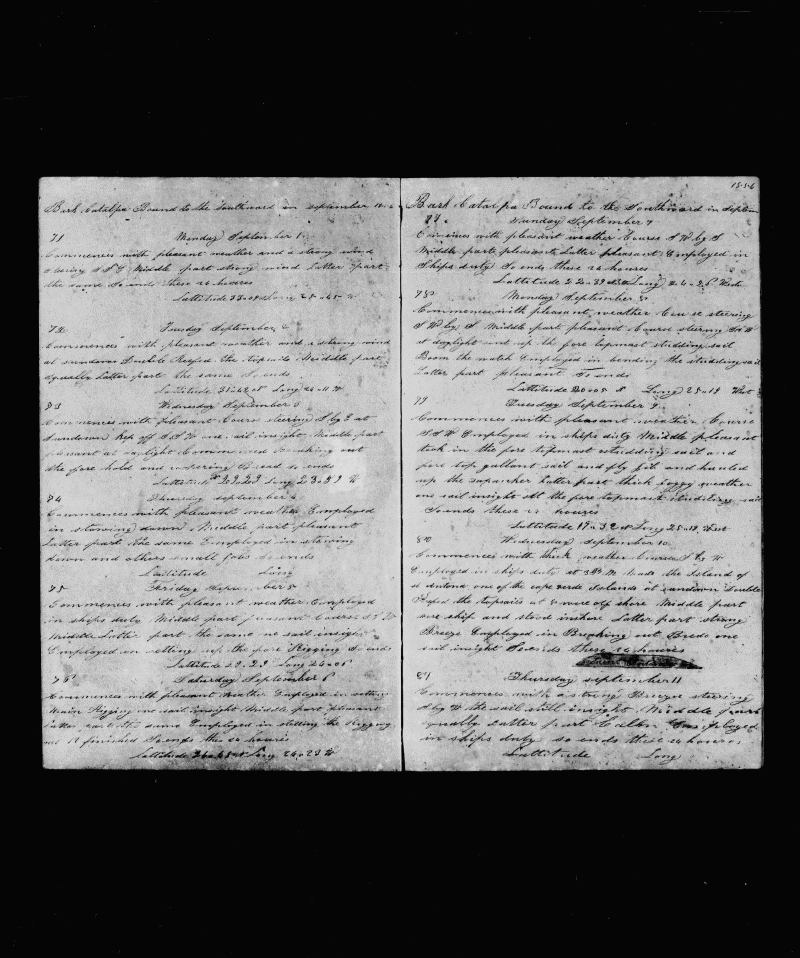 Bark Catalpa Bound to the Southward in september
71 Monday September 1
Commences with pleasant weather and a strong wind
steering S S E Middle part strong wind Latter part
the same So ends these 24 houres
Lattitude Long 25 = 45 W
72 Tuesday September 2
Commences with pleasant weather and a strong wind
at sundown Double Reefed the topsails Middle part
squally Latter part the same So ends
Lattitude 31 = 42 N Long 26 = 11 W
Wednesday September 3
Commences with pleasant Course steering S by E at
Sundown Kep off S S W one sail insight Middle part
pleasant at daylight Commenced Breaking out
the fore hold and so ends
Lattitude 29 = 29 Long W
Thursday september 4
Commences with pleasant weather Employed
in stowing down Middle part pleasant
Latter part the same Employed in stowing
down and others small jobs So ends
Lattitude Long
75 Friday September 5
Commences with pleasant weather Employed
in ships duty Middle part pleasant Course S S W
Middle Latter part the same one sail insight
Employed on setting up the fore Rigging So ends
Lattitude Long 26 = 06
76 Saturday September 6
Commences with pleasant Weather Employed in setting
Main Rigging one sail insight Middle part pleasant
Latter part the same Employed in the Rigging
finished So ends the 24 houres
Lattitude Long 24 = 23 W
1856
Bark Catalpa Bound to the Southward in Septem
77 Sunday September 7
Comences with pleasant weather Course S W by S
Middle part pleasant Latter pleasant Employed in
Ships duty So ends these 24 houres
Lattitude Long 24 = 26 West
78 Monday September 8
Commences with pleasant weather Course steering
S W by S Middle part pleasant Course steering S S W
at daylight and up the fore topmast studding sail
Boom the watch Employed in bending the studding sail
Latter part pleasant So ends
Lattitude 20 = 05 N Long 25 = 19 West
79 Tuesday September 9
Commences with pleasant weather Course
S S W Employed in ships duty Middle pleasant
took in the fore topmast studding sail and
fore top gallant sail and fly jib and hauled
up the spanker Latter part thick foggy weather
one sail insight set the fore topmast studding sail
So ends these 24 houres
Lattitude 17 = 32 N Long 25 = 19 West
80 Wednesday September 10
Commences with thick weather Course S by W
Employed in ships duty at M made the Island of
st Antona one of the cape verde Islands at sundown Double
Reefed the topsails at 8 wore off shore Middle part
wore ship and stood inshore Latter part strong
Breeze Employed in Breaking out Bredo one
sail insight So ends these 24 houres
81 Thursday september 11
Commences with a strong Breeze steering
S by W the sail still insight Middle part
squally Latter part Calm Employed
in ships duty so ends these 24 houres
Lattitude Long